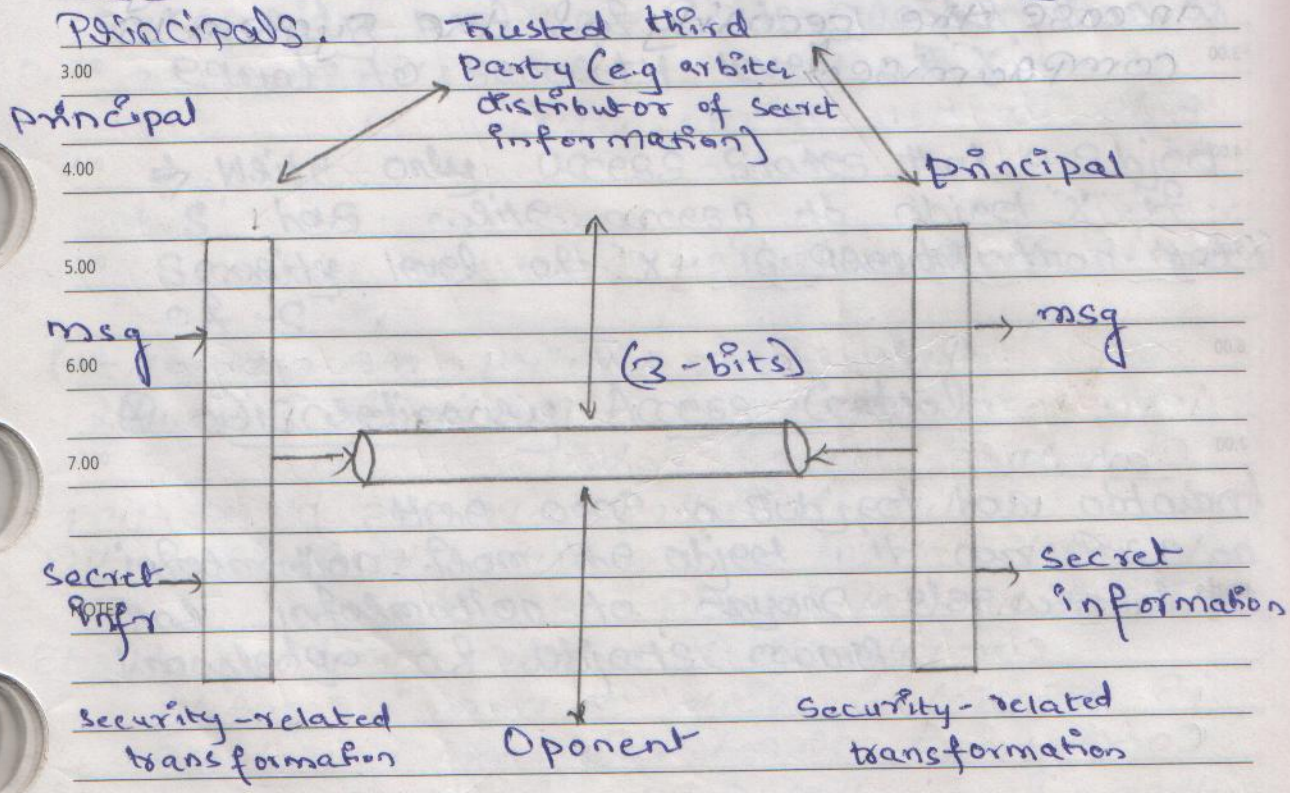 Principals.
Trusted third
3.00
Party (e.g arbiter
principal
distributor of secret
information)
4.00
principal
5.00
msg
msg
6.00
(3-bits)
7.00
secret
infr
NOTES
secret
information
security-related
transformation
Oponent
security-related
transformation